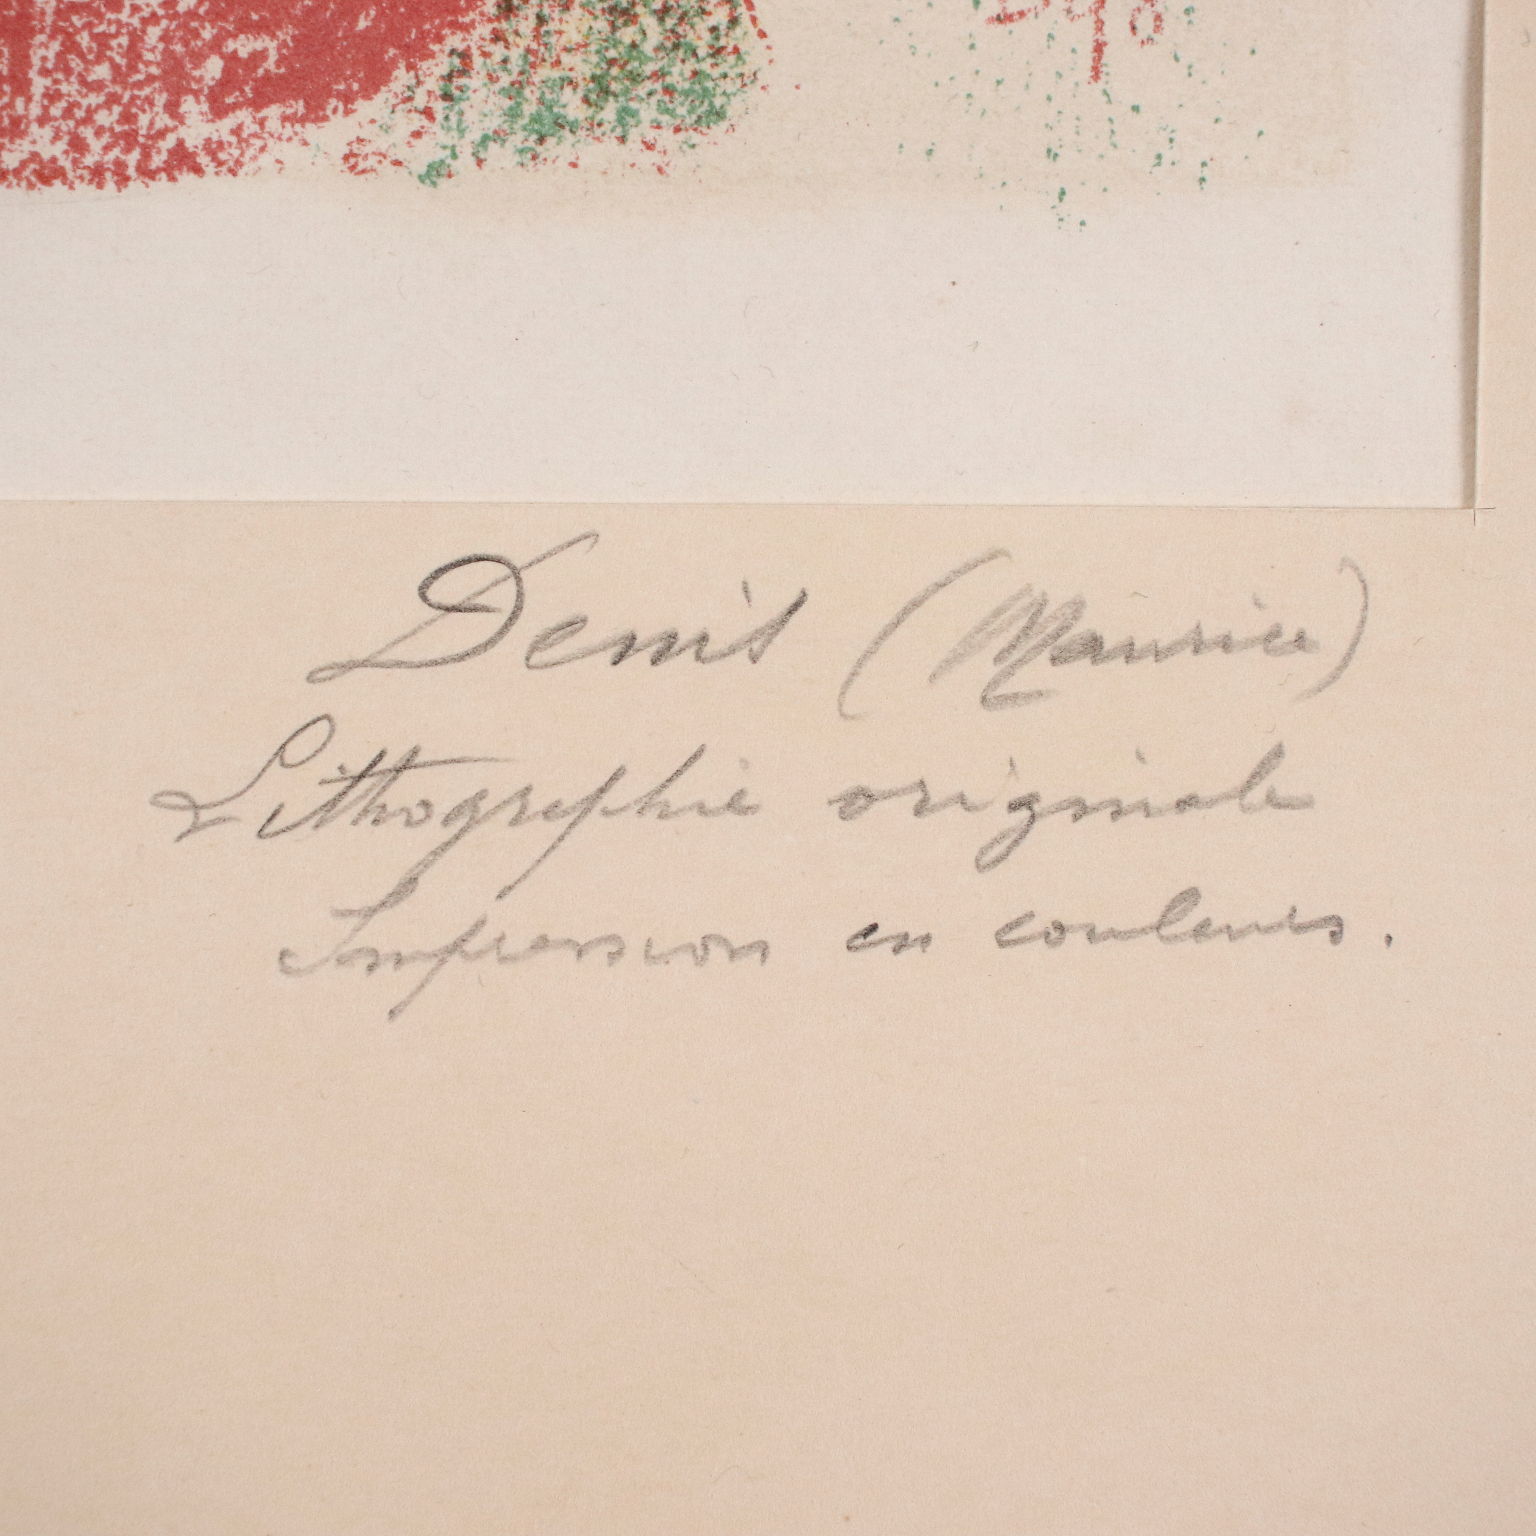 Denis (Maurice)
Lithographie originale
Impression en couleurs.